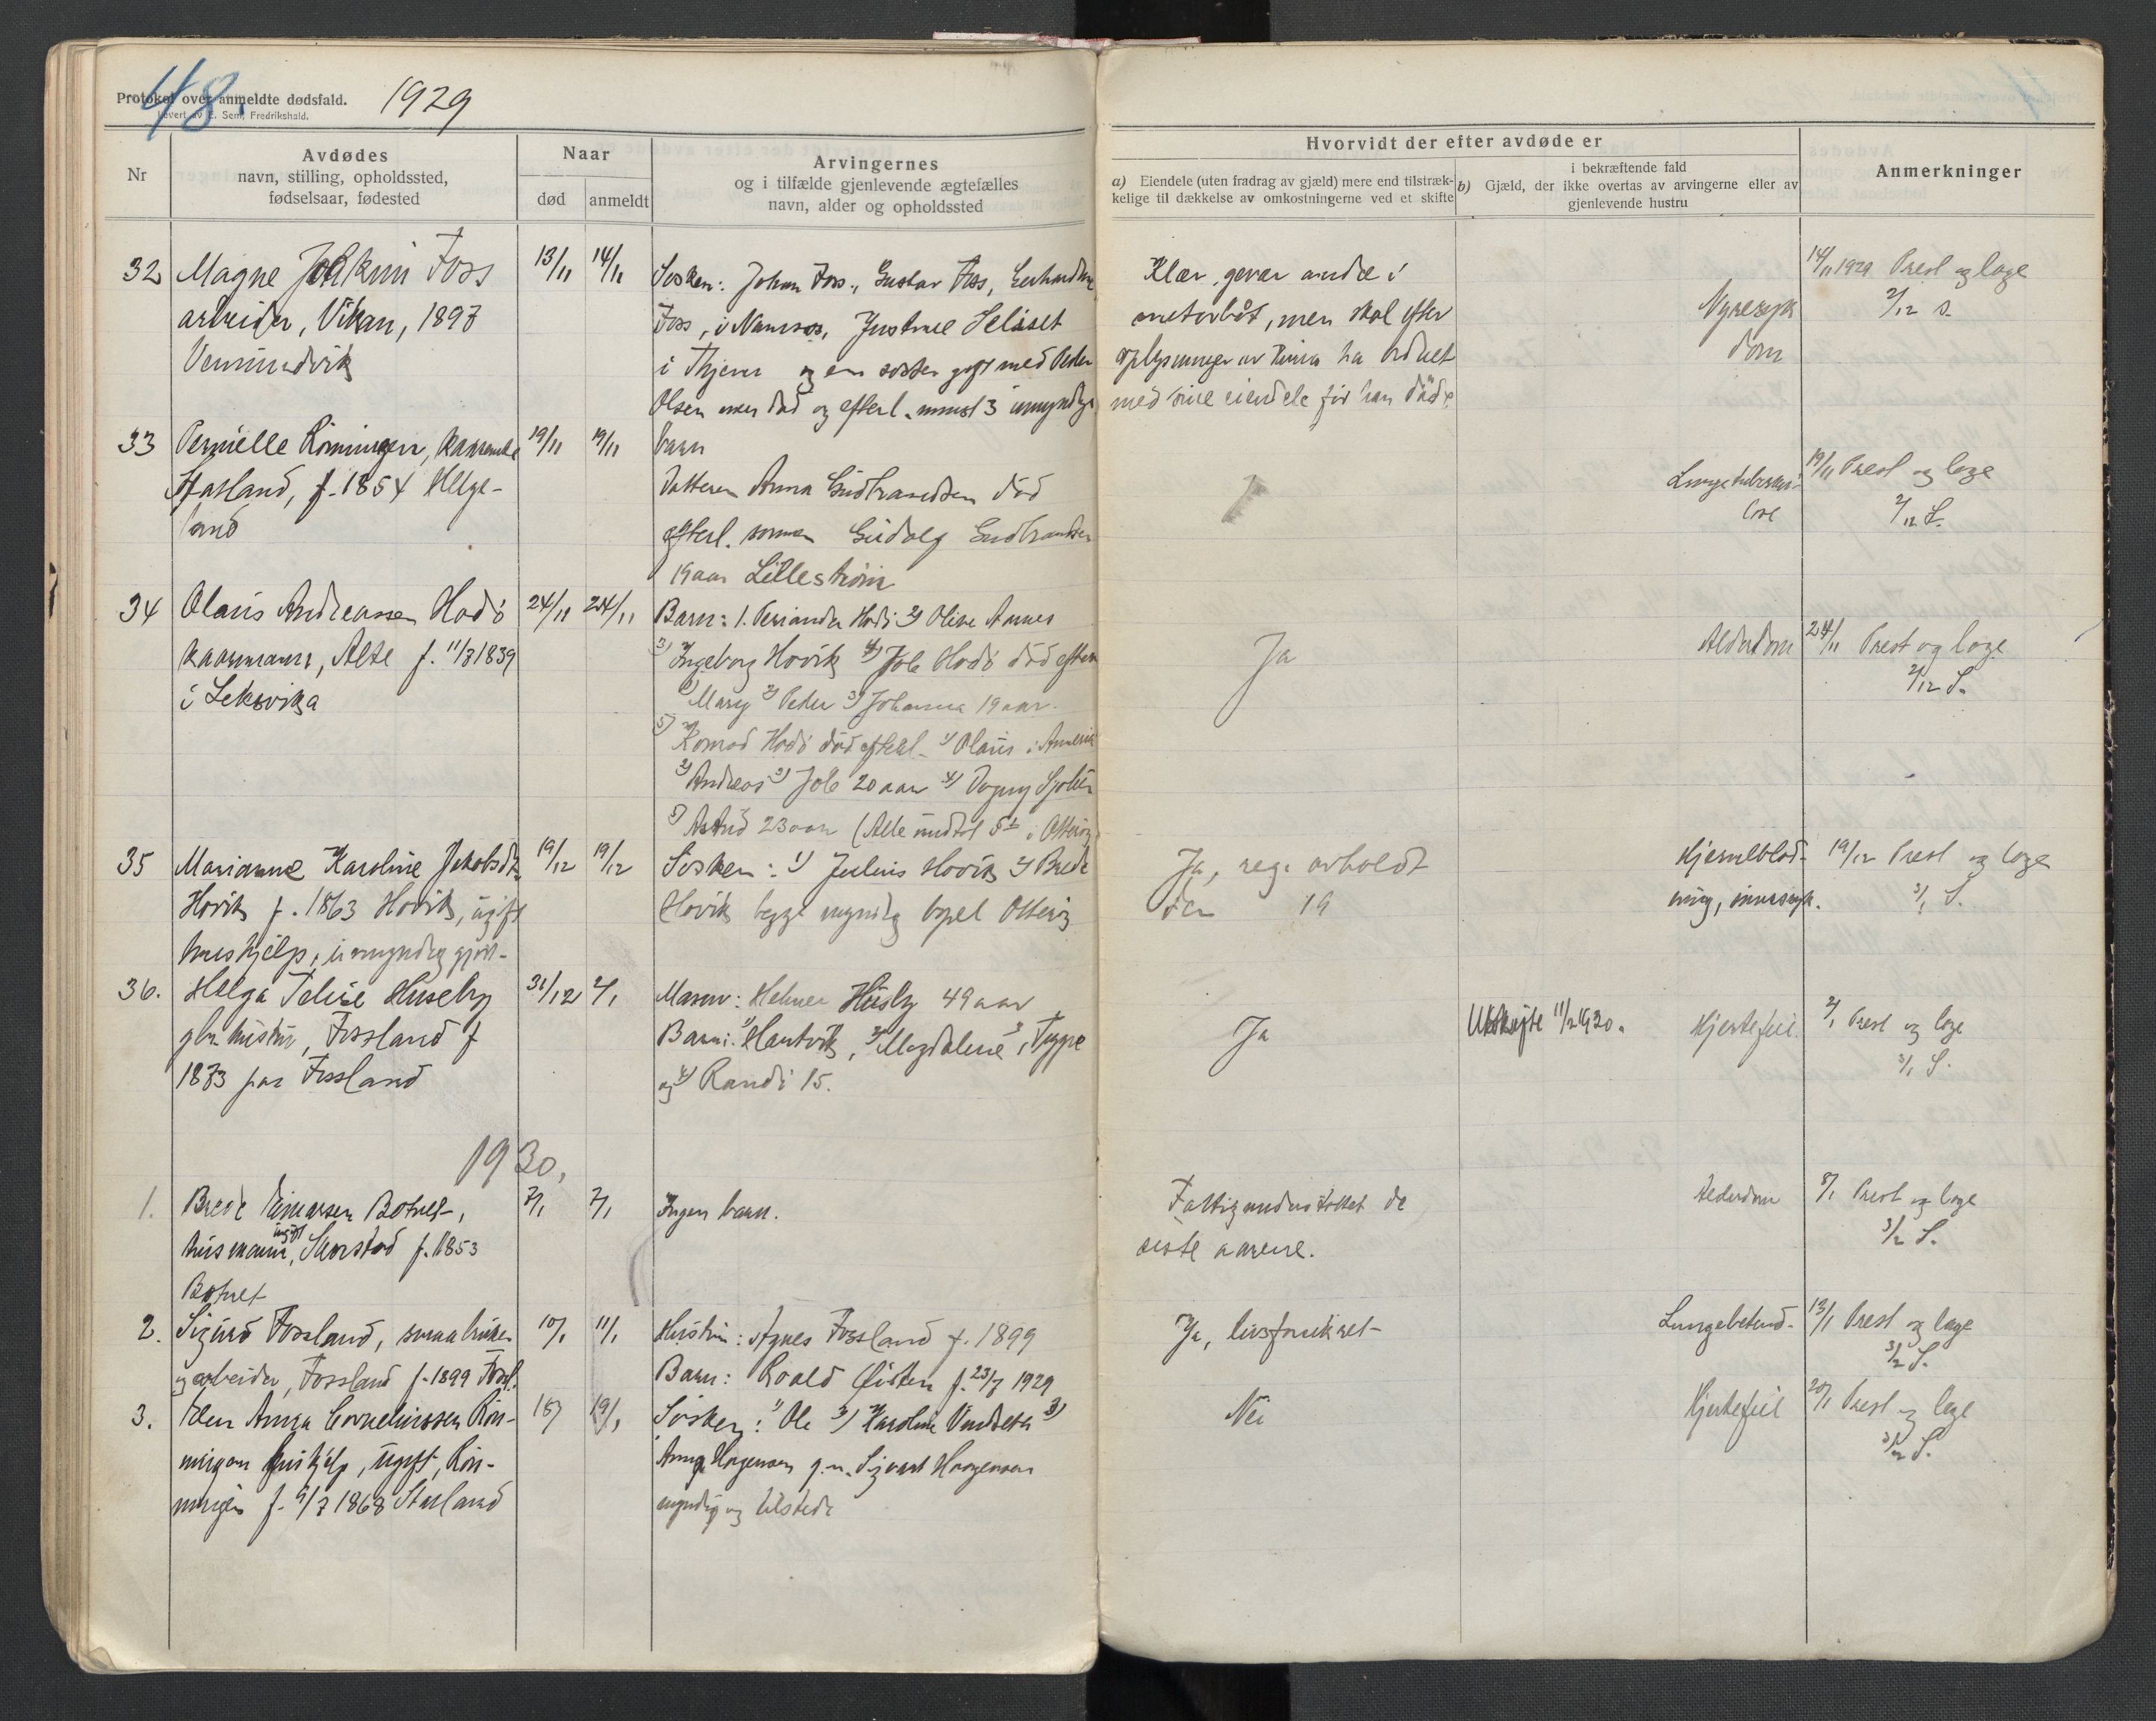 48.
Protokol over anmeldte dødsfald. 1929
Levert av E. Sem, Fredrikshald.
Nr
Avdødes
navn, stilling, opholdssted,
fødselsaar, fødested
Naar
død
anmeldt
Arvingernes
og i tilfælde gjenlevende ægtefælles
navn, alder og opholdssted
Hvorvidt der efter avdøde er
a) Eiendele (uten fradrag av gjæld) mere end tilstræk-
kelige til dækkelse av omkostningerne ved et skifte
i bekræftende fald
b) Gjæld, der ikke overtas av arvingerne eller av
gjenlevende hustru
Anmerkninger
32 Magne Joakim Foss
arbeider, Vikan, 1893
Vemundvik
13/11 14/11
Søsken: Johan Foss, Gustav Foss,
Foss, i Namsos, Selisset
i og en søster gift med Peder
Olsen men død og efterl. minst 3 umyndige
barn
Klær, gevær andel i
motorbåt, men skal efter
oplysninger av ha ordnet
med sine eiendele før han døde
Nyresyk
dom
14/11 1929 Prest og lage
2/12 S.
33 Pernielle Rönningen,
Stasland, f. 1854 Helge-
land
19/11 19/11
Datteren Anna Gudbrandsen død
efterl. sønnen Gudbrandsen
19 aar Lilleström
Lungetuberku-
lose
19/11 Prest og lage
2/12 S.
34 Olaus Andreassen Hodö
kaarmann, Alte f. 11/3 1839
i Leksvika
24/11 24/11
Barn: 1. Hodö 2) Oline Aarnes
3) Ingeborg Hovik 4) Job Hodö død efterl
1) Mary 2) Peder 3) Johanna 19 aar.
5) Konrad Hodö død efterl. 1) Olaus i Amerika
2) Andreas 3) Job 20 aar 4) Dagny
5) Astrid 23 aar (Alle undtat 5 1 i Otterøy
Ja
Alderdom
24/11 Prest og lage
2/12 S.
35 Marianne Karoline Jakobsdtr
Hovik f. 1863 Hovik, ugift
hushjelp, umyndig gjort.
19/12 19/12
Søsken: 1) Julius Hovik 2) Brede
Hovik begge myndig bopel Otterøy
Ja, reg. avholdt
den 19
Hjerneblød-
ning,
19/12 Prest og lage
3/1 S.
36. Helga Huseby
gbr. hustru, Fossland f
1873 paa Fossland
31/12 2/1
Mann: Helmer Husby 49 aar
Barn: 1) Hartvik, 2) Magdalene 3) Trygve
og 4) Randi 15.
Ja
Utskifte 11/2 1930.
Hjertefeil.
2/1 Prest og lage
3/1 S.
1930,
1. Brede Einarsen Botnet,
husmann, ugift, Skorstad f. 1853
Botnet
7/1 7/1
Ingen barn.
Fattigunderstöttet de
siste aarene.
Alderdom
8/1 Prest og lage
3/2 S.
2. Sigurd Fossland, smaabruker
og arbeider, Fossland f. 1899 Fossl.
10/1 11/1
Hustru: Agnes Fossland f. 1899
Barn: Roald Öisten f. 23/7 1929
Ja, livsforsikret
Lungebetend-
13/1 Prest og lage
3/2 S.
3. Elen Anna Corneliussen Rön-
ningen hushjelp, ugift, Rön-
ningen f. 9/3 1868 Stasland
18/1 19/1
Søsken: 1) Ole 2) Karoline Vindseth 3)
Anna Haagensen g.m. Sigvart Haagensen
myndig og tilstede
Nei
Hjertefeil
20/1 Prest og lage
3/2 S.